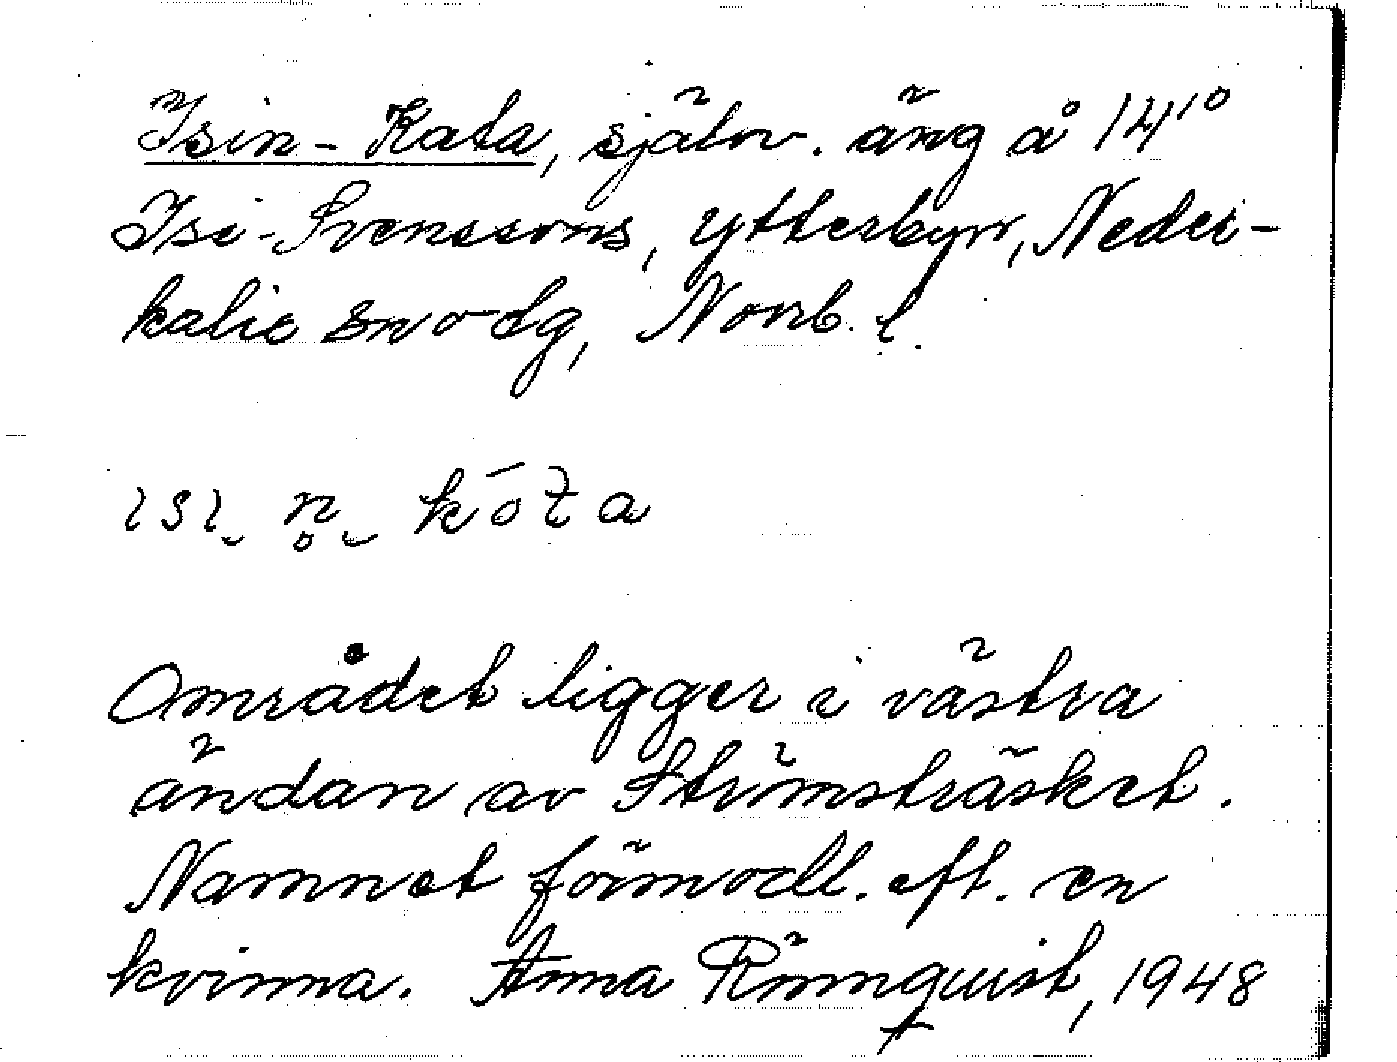 Isin-Kata, självr. äng å 14¹⁰
Isi-Svenssons, Ytterbyn, Neder-
kalix snodg, Norrb. l.
ısı̮ n̥̮ kóta
Området ligger i västra
ändan av Strömsträsket.
Namnet förmodl. eft. en
kvinna. Anna Rönnquist, 1948